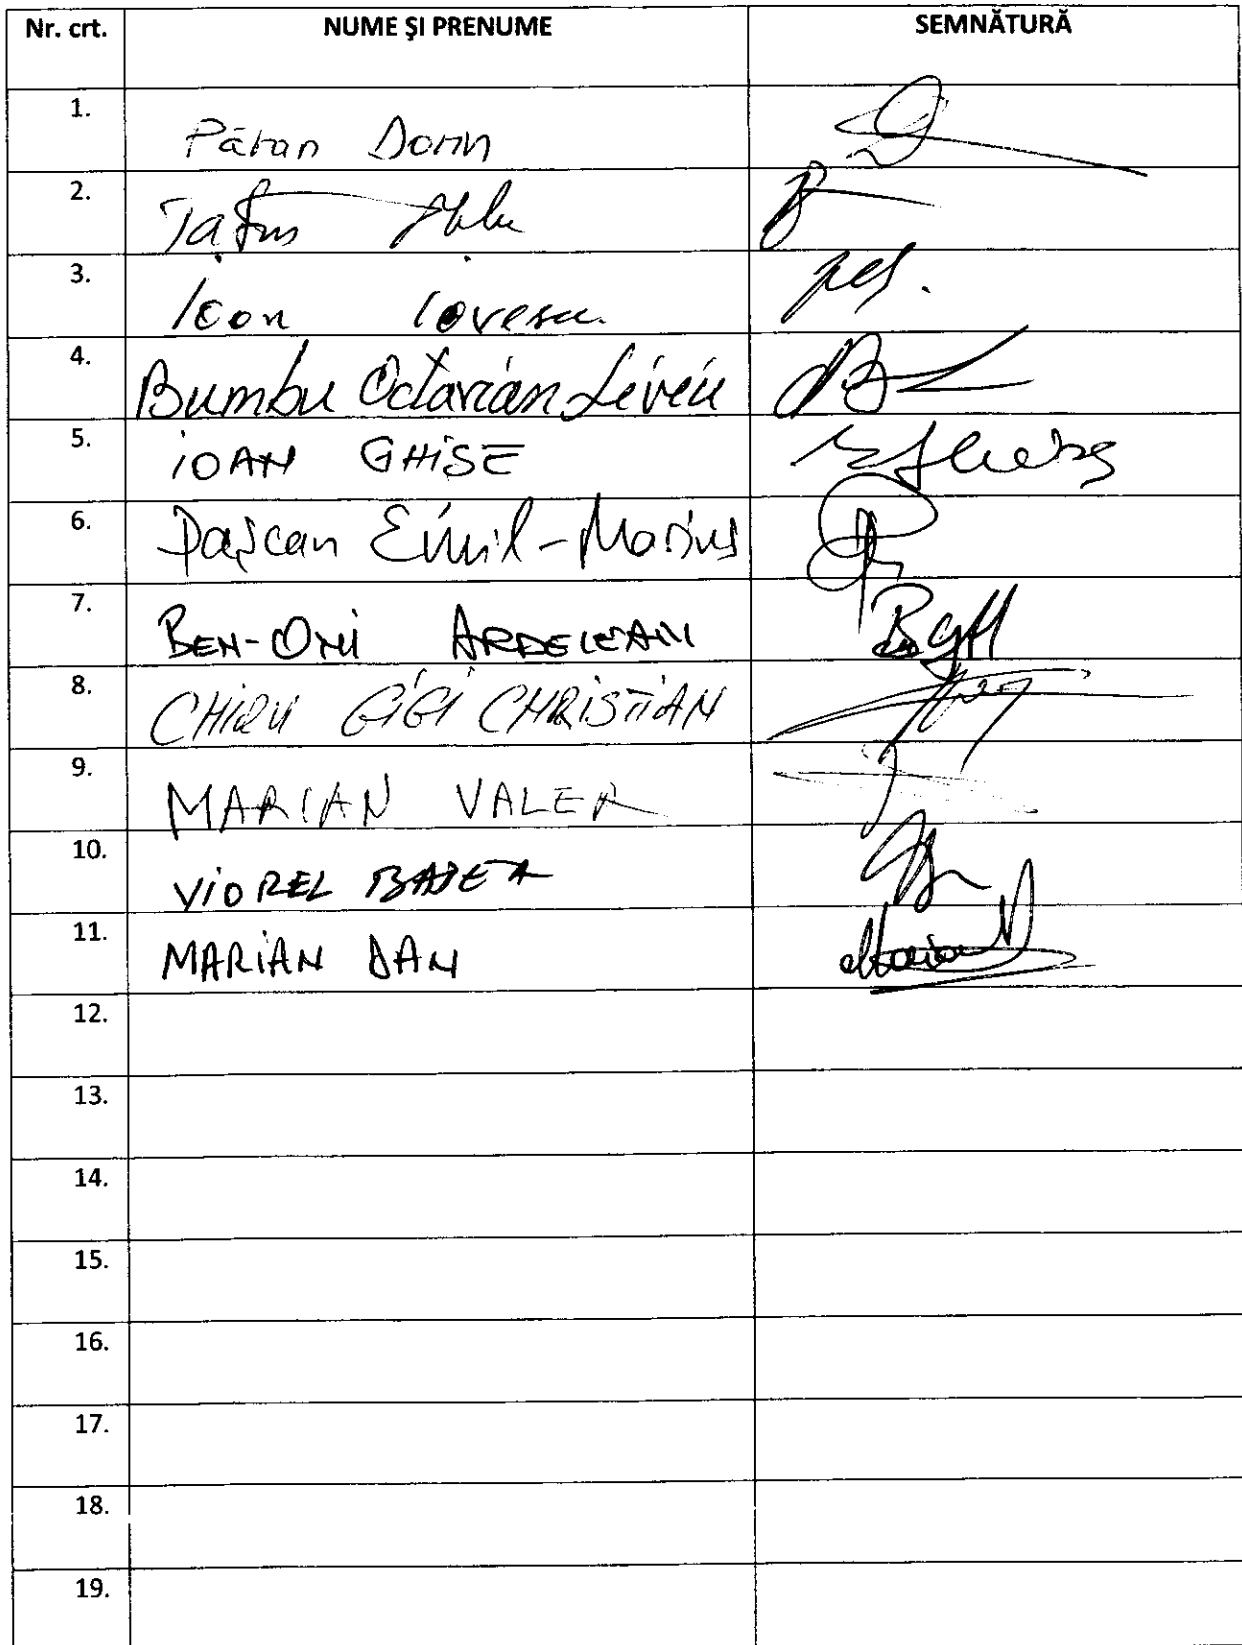 Nr. crt. NUME ŞI PRENUME SEMNĂTURĂ
1. Păran Dorin
2.
3. Iovescu
4. Bumbu Octavian Liviu
5. IOAN GHIŞE
6. Paşcan Emil-Marius
7. BEN-ONI ARDELEAN
8. CHIRU GIGI CHRISTIAN
9. MARIAN VALER
10. VIOREL BADEA
11. MARIAN DAN
12.
13.
14.
15.
16.
17.
18.
19.